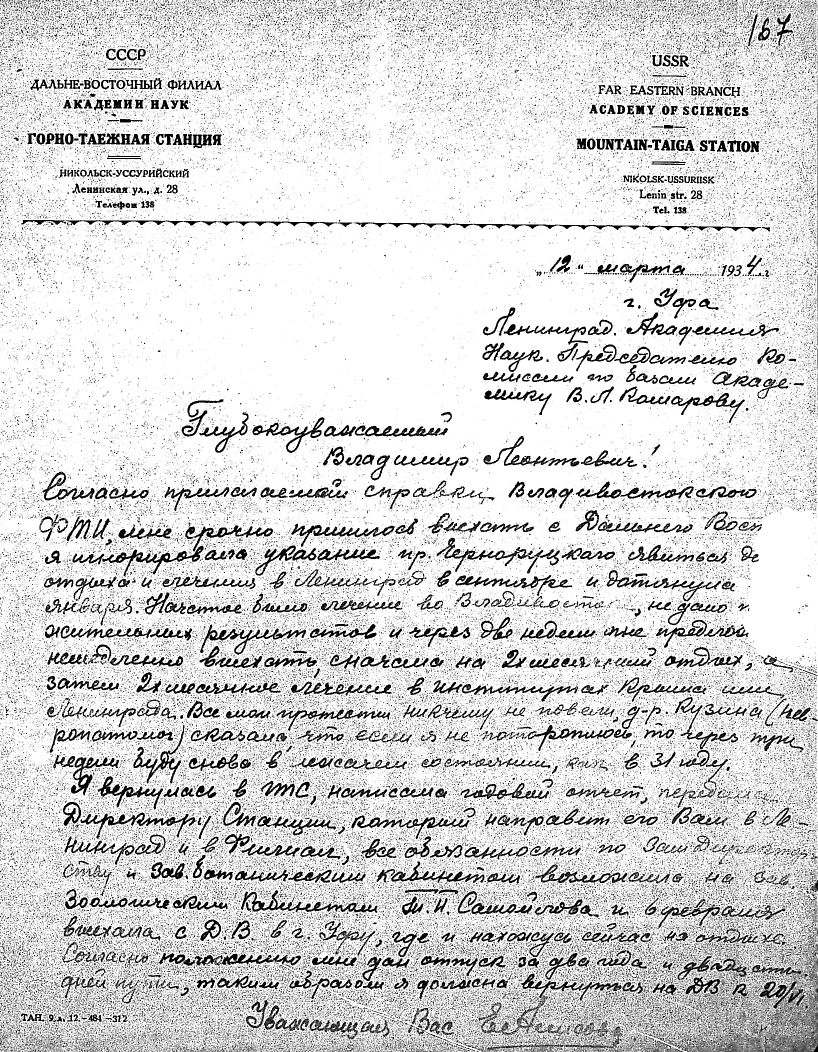 167
СССР
ДАЛЬНЕ-ВОСТОЧНЫЙ ФИЛИАЛ
АКАДЕМИИ НАУК
ГОРНО-ТАЕЖНАЯ СТАНЦИЯ
НИКОЛЬСК-УССУРИЙСКИЙ
Ленинская ул., д. 28
Телефон 138
USSR
FAR EASTERN BRANCH
ACADEMY OF SCIENCES
MOUNTAIN-TAIGA STATION
NIKOLSK-USSURIISK
Lenin str. 28
Tel. 138
„12“ марта 1934 г.
г. Уфа
Ленинград. Академия
Наук. Председателю Ко-
миссии по базам Акаде-
мику В.Л. Комарову.
Глубокоуважаемый
Владимир Леонтьевич!
Согласно прилагаемой справки, Владивостокского
ФТИ, мне срочно пришлось выехать с Дальнего Вост
я игнорировала указание пр. Черноруцкого явиться
отдыха и лечения в Ленинград в сентябре и дотянула
января. Начатое было лечение во Владивостоке, не дало
жительных результатов и через две недели мне предлож
немедленно выехать, сначала на 2х месячный отдых, а
затем 2х месячное лечение в институтах Крыма или
Ленинграда. Все мои протесты ни к чему не повели, д-р. Кузина (нев-
ропатолог) сказала, что если я не потороплюсь, то через три
недели буду снова в лежачем состоянии, как в 31 году.
Я вернулась в ГТС, написала годовой отчет, передала
Директору Станции, который направит его Вам в Ле-
нинград и в Филиал, все обязанности по Зам Директор-
ству и Зав. ботаническим кабинетом возложила на Зав.
Зоологическим Кабинетом Т.П. Самойлова и 6 февраля
выехала с Д.В в г. Уфу, где и нахожусь сейчас на отдыхе.
Согласно положению мне дан отпуск за два года и двадцать
дней пути, таким образом я должна вернуться на ДВ к 20/VI.
Уважающая Вас
ТАН. 9.д. 12.-484-312